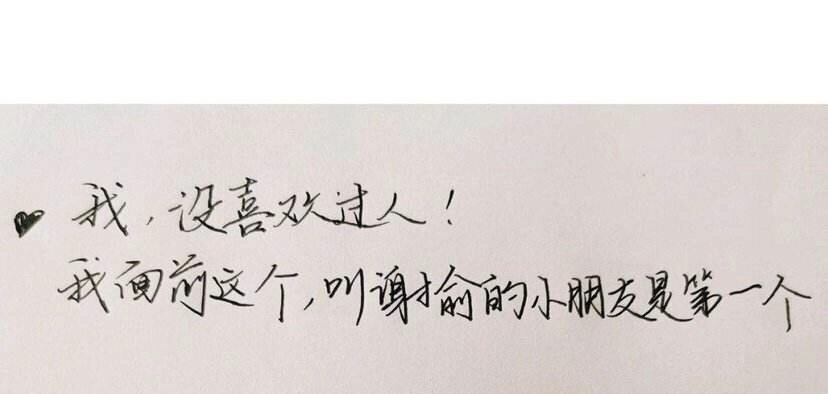 我，没喜欢过人！
我面前这个，叫谢揄的小朋友是第一个